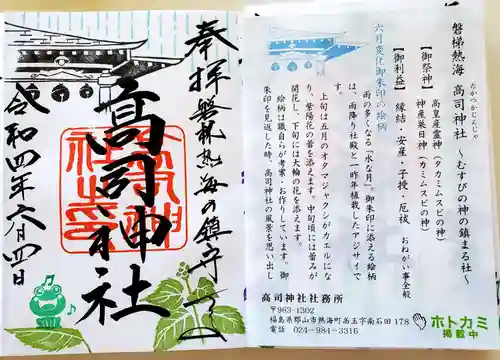 奉拝 磐梯熱海の鎮守
高司神社
令和四年六月四日
磐梯熱海 高司神社 ～むすびの神の鎮まる社～
たかつかじんじゃ
【御祭神】
高皇産霊神（タカミムスビの神）
神産巣日神（カミムスビの神）
【御利益】
縁結・安産・子授・厄祓 おおがい事全般
六月変化御朱印の絵柄
雨の多くなる「水な月」。御朱印に添える絵柄
は、雨降り社殿と一昨年植栽したアジサイで
す。
上旬は五月のオタマジャクシがカエルにな
り、紫陽花の蕾を添えます。中旬頃には蕾みが
開花し、下旬には大輪の花を添えます。
絵柄は職自らが考案・お作りしています。御
朱印を見返した時、高司神社の風景を思い出し
高司神社社務所
〒963-1302
福島県郡山市熱海町高玉字南石田 178
電話 024-984-3316
ホトカミ
掲載中